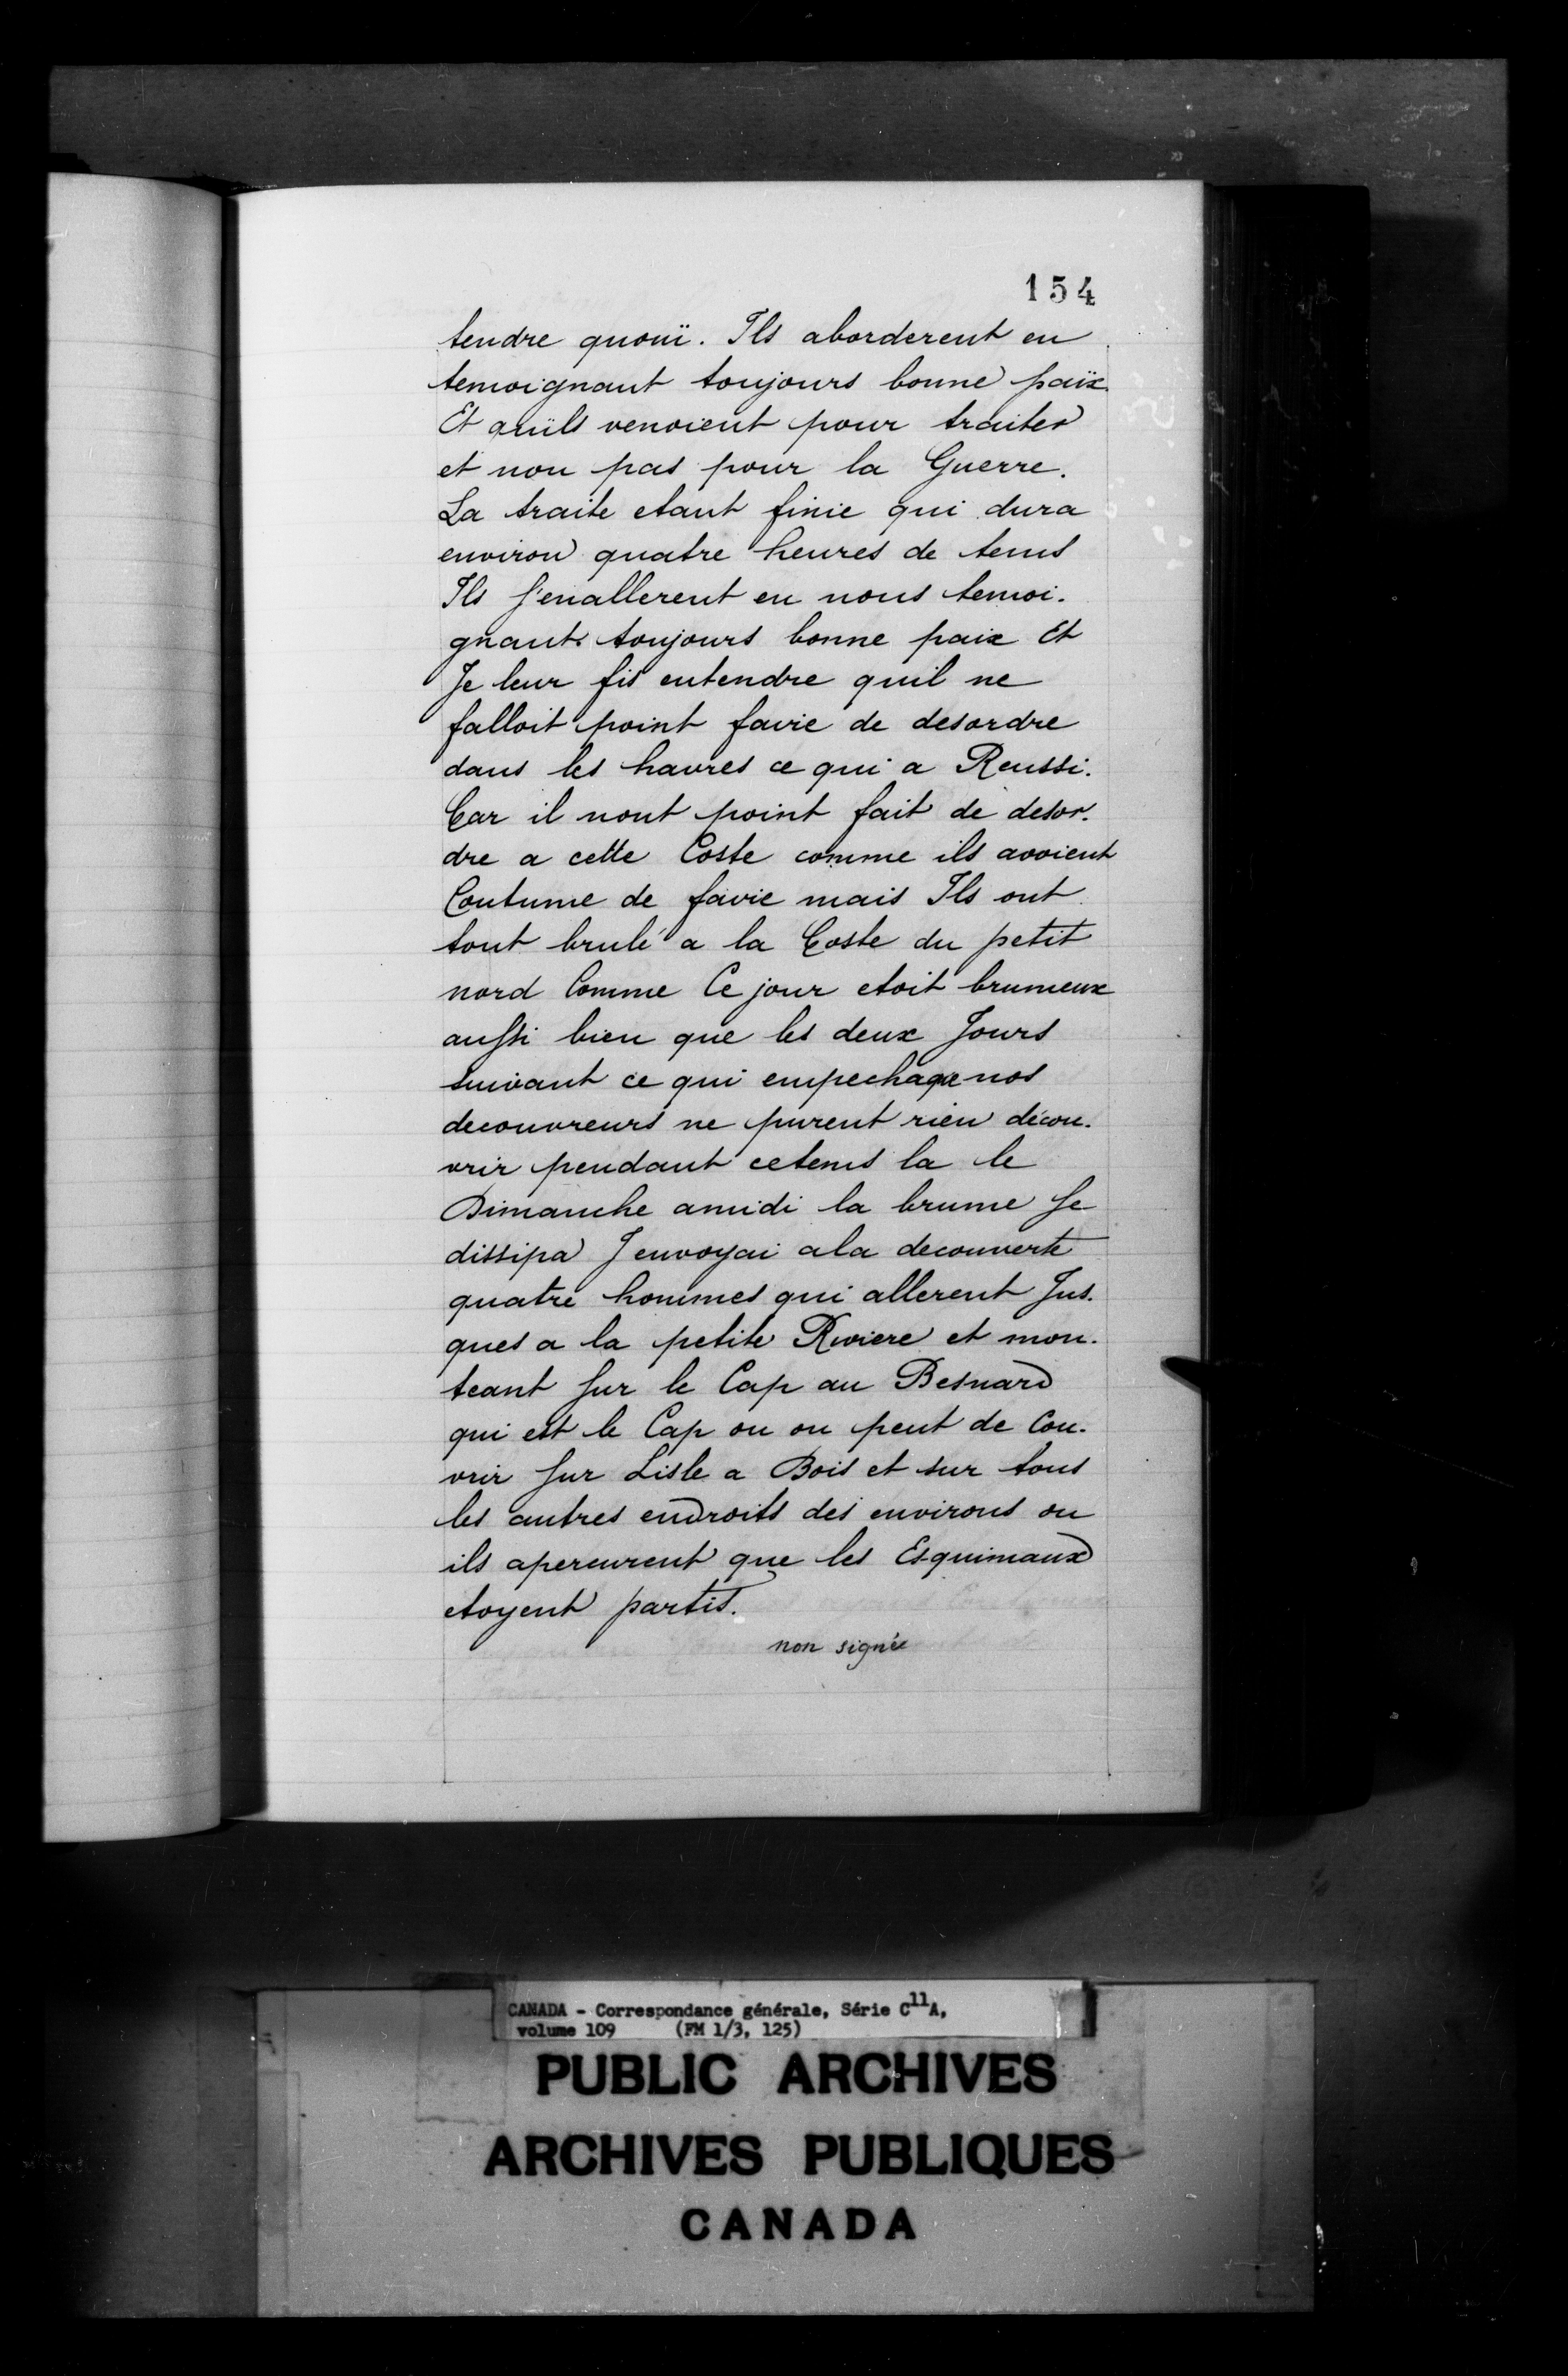 154
tendre quouï. Ils aborderent en
temoignant toujours bonne paix
Et qu'ils venoïent pour traiter
et non pas pour la Guerre.
La traite etant finie qui dura
environ quatre heures de tems
Ils s'enallerent en nous temoi-
gnant toujours bonne paix Et
Je leur fis entendre quil ne
falloit point faire de desordre
dans les havres ce qui a Reussi.
Car il nont point fait de desor-
dre a cette Coste comme ils avoient
Coutume de faire mais Ils ont
tout brulé a la Coste du petit
nord Comme Ce jour etoit brumeux
aussi bien que les deux Jours
suivant ce qui empecha que nos
decouvreurs ne purent rien décou-
vrir pendant cetems la le
Dimanche amidi la brume se
dissipa J envoyai ala decouverte
quatre hommes qui allerent Jus-
ques a la petite Riviere et mon-
teant sur le Cap au Besnard
qui est le Cap ou on peut de Cou-
vrir sur Lisle a Bois et sur tous
les autres endroits des environs ou
ils apercurent que les Esquimaux
etoyent partis.
non signée
CANADA - Correspondance générale, Série C11A,
volume 109 (FM 1/3, 125)
PUBLIC ARCHIVES
ARCHIVES PUBLIQUES
CANADA